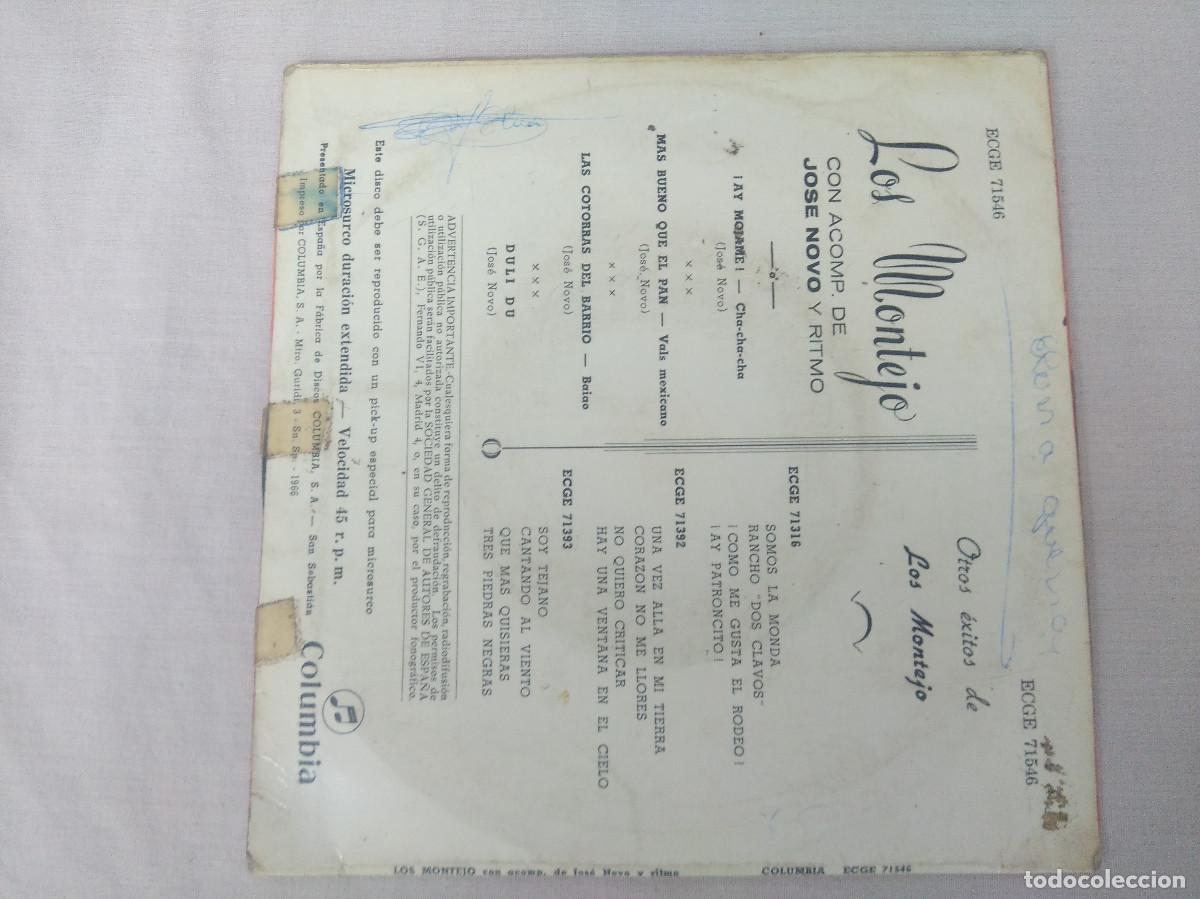 ECGE 71546
ECGE 71546
Los Montejo
CON ACOMP. DE
JOSE NOVO Y RITMO
¡AY MOJAME! — Cha-cha-cha
(José Novo)
×××
MAS BUENO QUE EL PAN — Vals mexicano
(José Novo)
×××
LAS COTORRAS DEL BARRIO — Baiao
(José Novo)
×××
DULI DU
(José Novo)
Otros éxitos de
Los Montejo
ECGE 71316
SOMOS LA MONDA
RANCHO "DOS CLAVOS"
¡COMO ME GUSTA EL RODEO!
¡AY PATRONCITO!
ECGE 71392
UNA VEZ ALLA EN MI TIERRA
CORAZON NO ME LLORES
NO QUIERO CRITICAR
HAY UNA VENTANA EN EL CIELO
ECGE 71393
SOY TEJANO
CANTANDO AL VIENTO
QUE MAS QUISIERAS
TRES PIEDRAS NEGRAS
ADVERTENCIA IMPORTANTE.-Cualesquiera forma de reproducción, regrabación, radiodifusión
o utilización pública no autorizada constituye un delito de defraudación. Los permisos de
utilización pública serán facilitados por la SOCIEDAD GENERAL DE AUTORES DE ESPAÑA
(S. G. A. E.), Fernando VI, 4, Madrid 4, o, en su caso, por el productor fonográfico.
Este disco debe ser reproducido con un pick-up especial para microsurco
Microsurco duración extendida — Velocidad 45 r. p. m.
Presentado en España por la Fábrica de Discos COLUMBIA, S. A. — San Sebastián
Impreso por COLUMBIA, S. A. - Mtro. Guridi, 3 - Sn. Sn. - 1966
Columbia
LOS MONTEJO con acomp. de José Novo y ritmo COLUMBIA ECGE 71546
todocoleccion